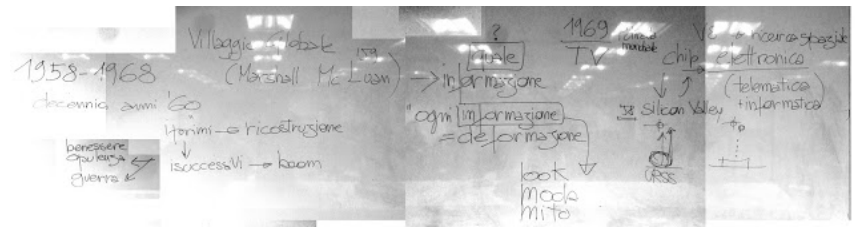 1958-1968
decennio anni '60
benessere
opulenza
guerra
Villaggio Globale
(Marshall Mc Luan)
159
I primi → ricostruzione
i successivi → boom
?
quale
→ informazione
"ogni informazione
= deformazione
look
moda
mito
1969
TV
mondiale
chip elettronico
(telematica
+ informatica)
'58 Silicon Valley
URSS
ricerca spaziale